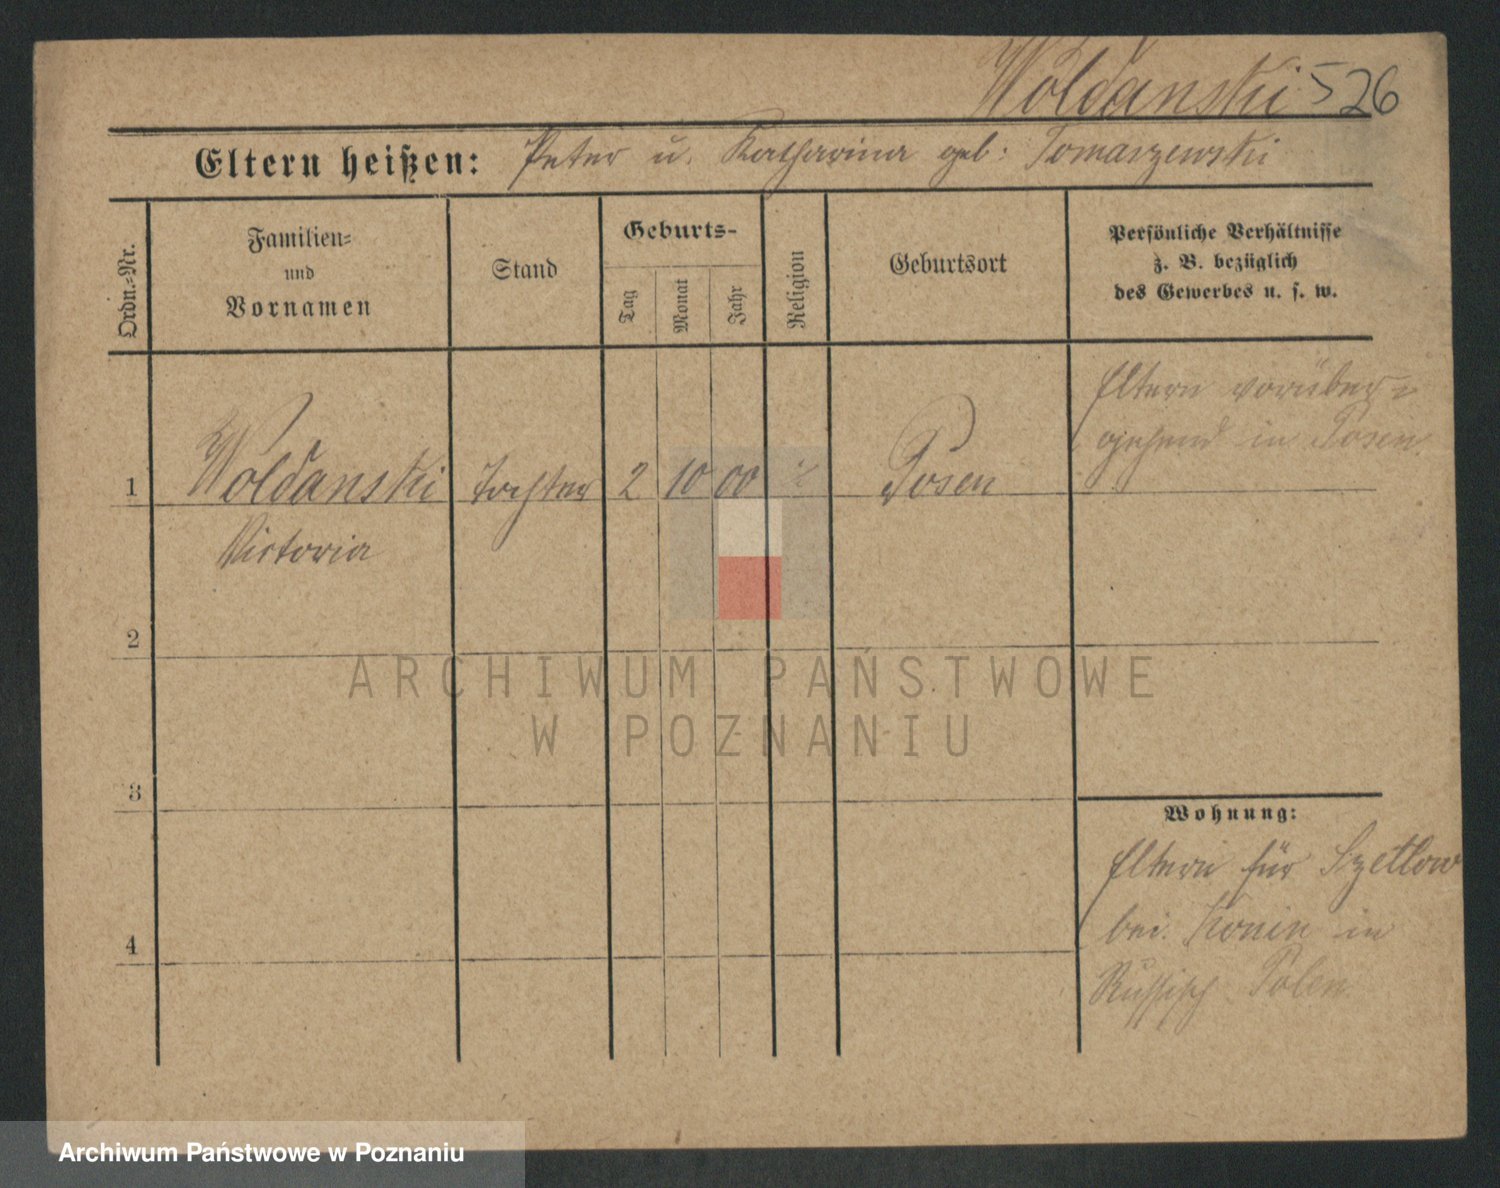 Woldanski 526
Eltern heißen: Peter u. Katharina geb: Tomaszewski
Ordn.-Nr.
Familien-
und
Vornamen
Stand
Geburts-
Tag
Monat
Jahr
Religion
Geburtsort
Persönliche Verhältnisse
z. B. bezüglich
des Gewerbes u. s. w.
Eltern vorüber-
gehend in Posen
1 Woldanski Tochter 2 10 00 Posen
Victoria
2
3
4
Wohnung:
Eltern für Szetlow
bei Konin in
Russisch Polen
ARCHIWUM PAŃSTWOWE
W POZNANIU
Archiwum Państwowe w Poznaniu